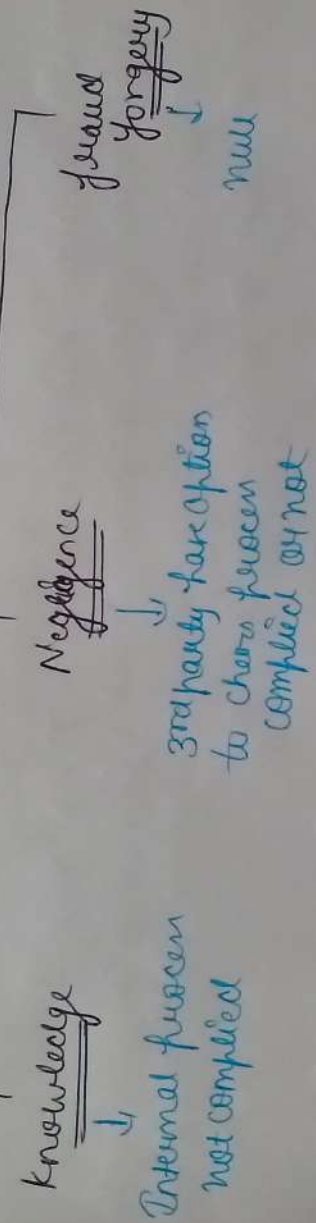 Knowledge
↓
Internal process
not complied
Negligence
↓
3rd party have option
to check process
complied or not
fraud
forgery
↓
null